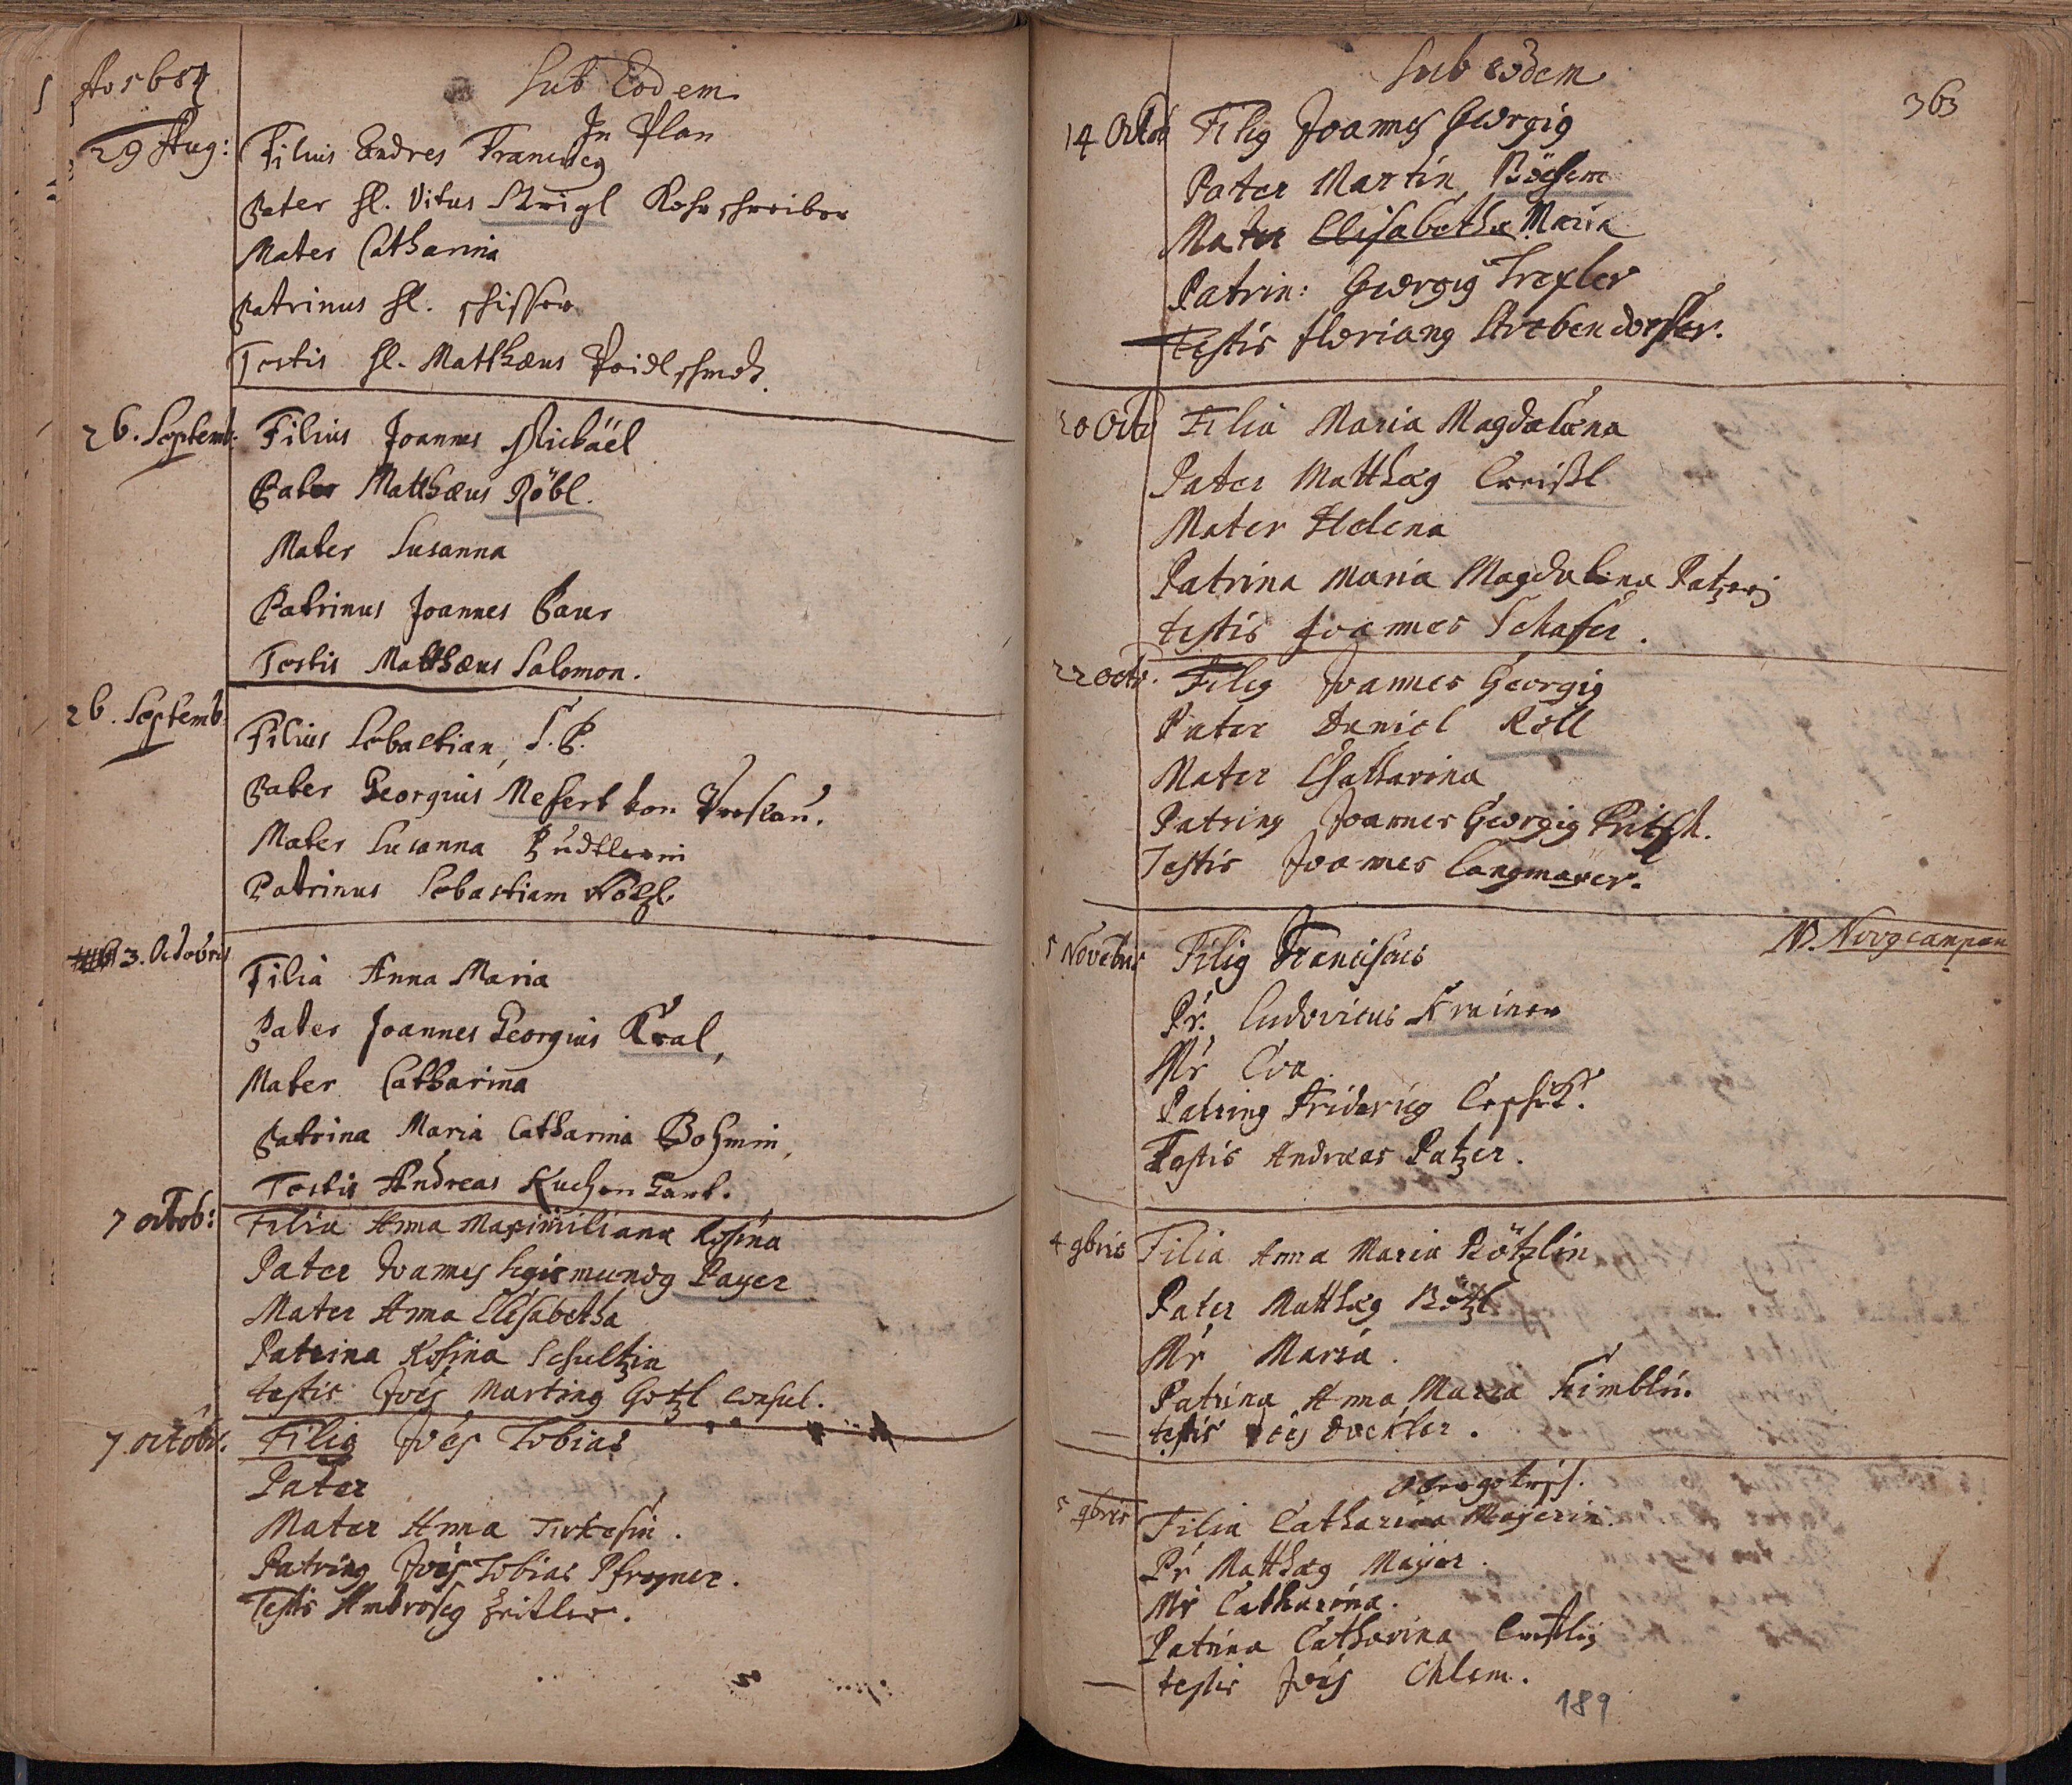 Sub Eodem
In Plan
29 Aug:
Filius Andres Franciscq
Pater Hl. Vitus Strigl
Mater Catharina
Patrinus Hl.
Testis Hl. Matthæus
26. Septemb:
Filius Joannes Michäel
Pater Matthæus Röbl.
Mater Susanna
Patrinus Joannes Paur
Testis Matthæus Salomon.
26. Septemb.
Filius Sebastian, S. P.
Pater Georgius Mesert von
Mater Susanna
Patrinus Sebastiam Hölzl.
3. Octobris
Filia Anna Maria
Pater Joannes Georgius Kral,
Mater Catharina
Patrina Maria Catharina Bohmin,
Testis Andreas
7 octob:
Filia Anna Maximiliana Rosina
Pater Joannes Sigismundq Payer
Mater Anna Elisabetha
Patrina Rosina Schultzin
testis Joes Martinq Götzl consul.
7 octobr.
Filiq Joes Tobias
Pater
Mater Anna
Patrinq Joes Tobias
Testis Ambrosiq Zeitler.
Sub eodem
363
14 Octob
Filiq Joannes Georgiq
Pater Martin Böhem
Mater Elisabetha Maria
Patrin: Georgiq Trexler
Testis Florianq Strebendorffer.
20 Octb
Filia Maria Magdalena
Pater Matthæq
Mater Helena
Patrina Maria Magdalena Patzerj
testis Joannes Schafer.
22 octb.
Filiq Joannes Georgiq
Pater Daniel Röll
Mater Chatharina
Patrinq Joannes Georgiq Pritsch.
Testis Joannes Langmayer.
5 Novebris
Filiq Franciscus
Pr. Ludovicus Krainer
Mr Eva
Patrinq Fridericq
Testis Andreas Patzer.
4 9bris
Filia Anna Maria Pötzlin
Pater Matthæq Pötzl
Mr Maria.
Patrina Anna Maria
testis Joes Dockler.
5 9bris
Filia Catharina Mayerin.
Pr Matthæq Mayer.
Mr Catharina.
Patrina Catharina
testis Joes Chlem.
189